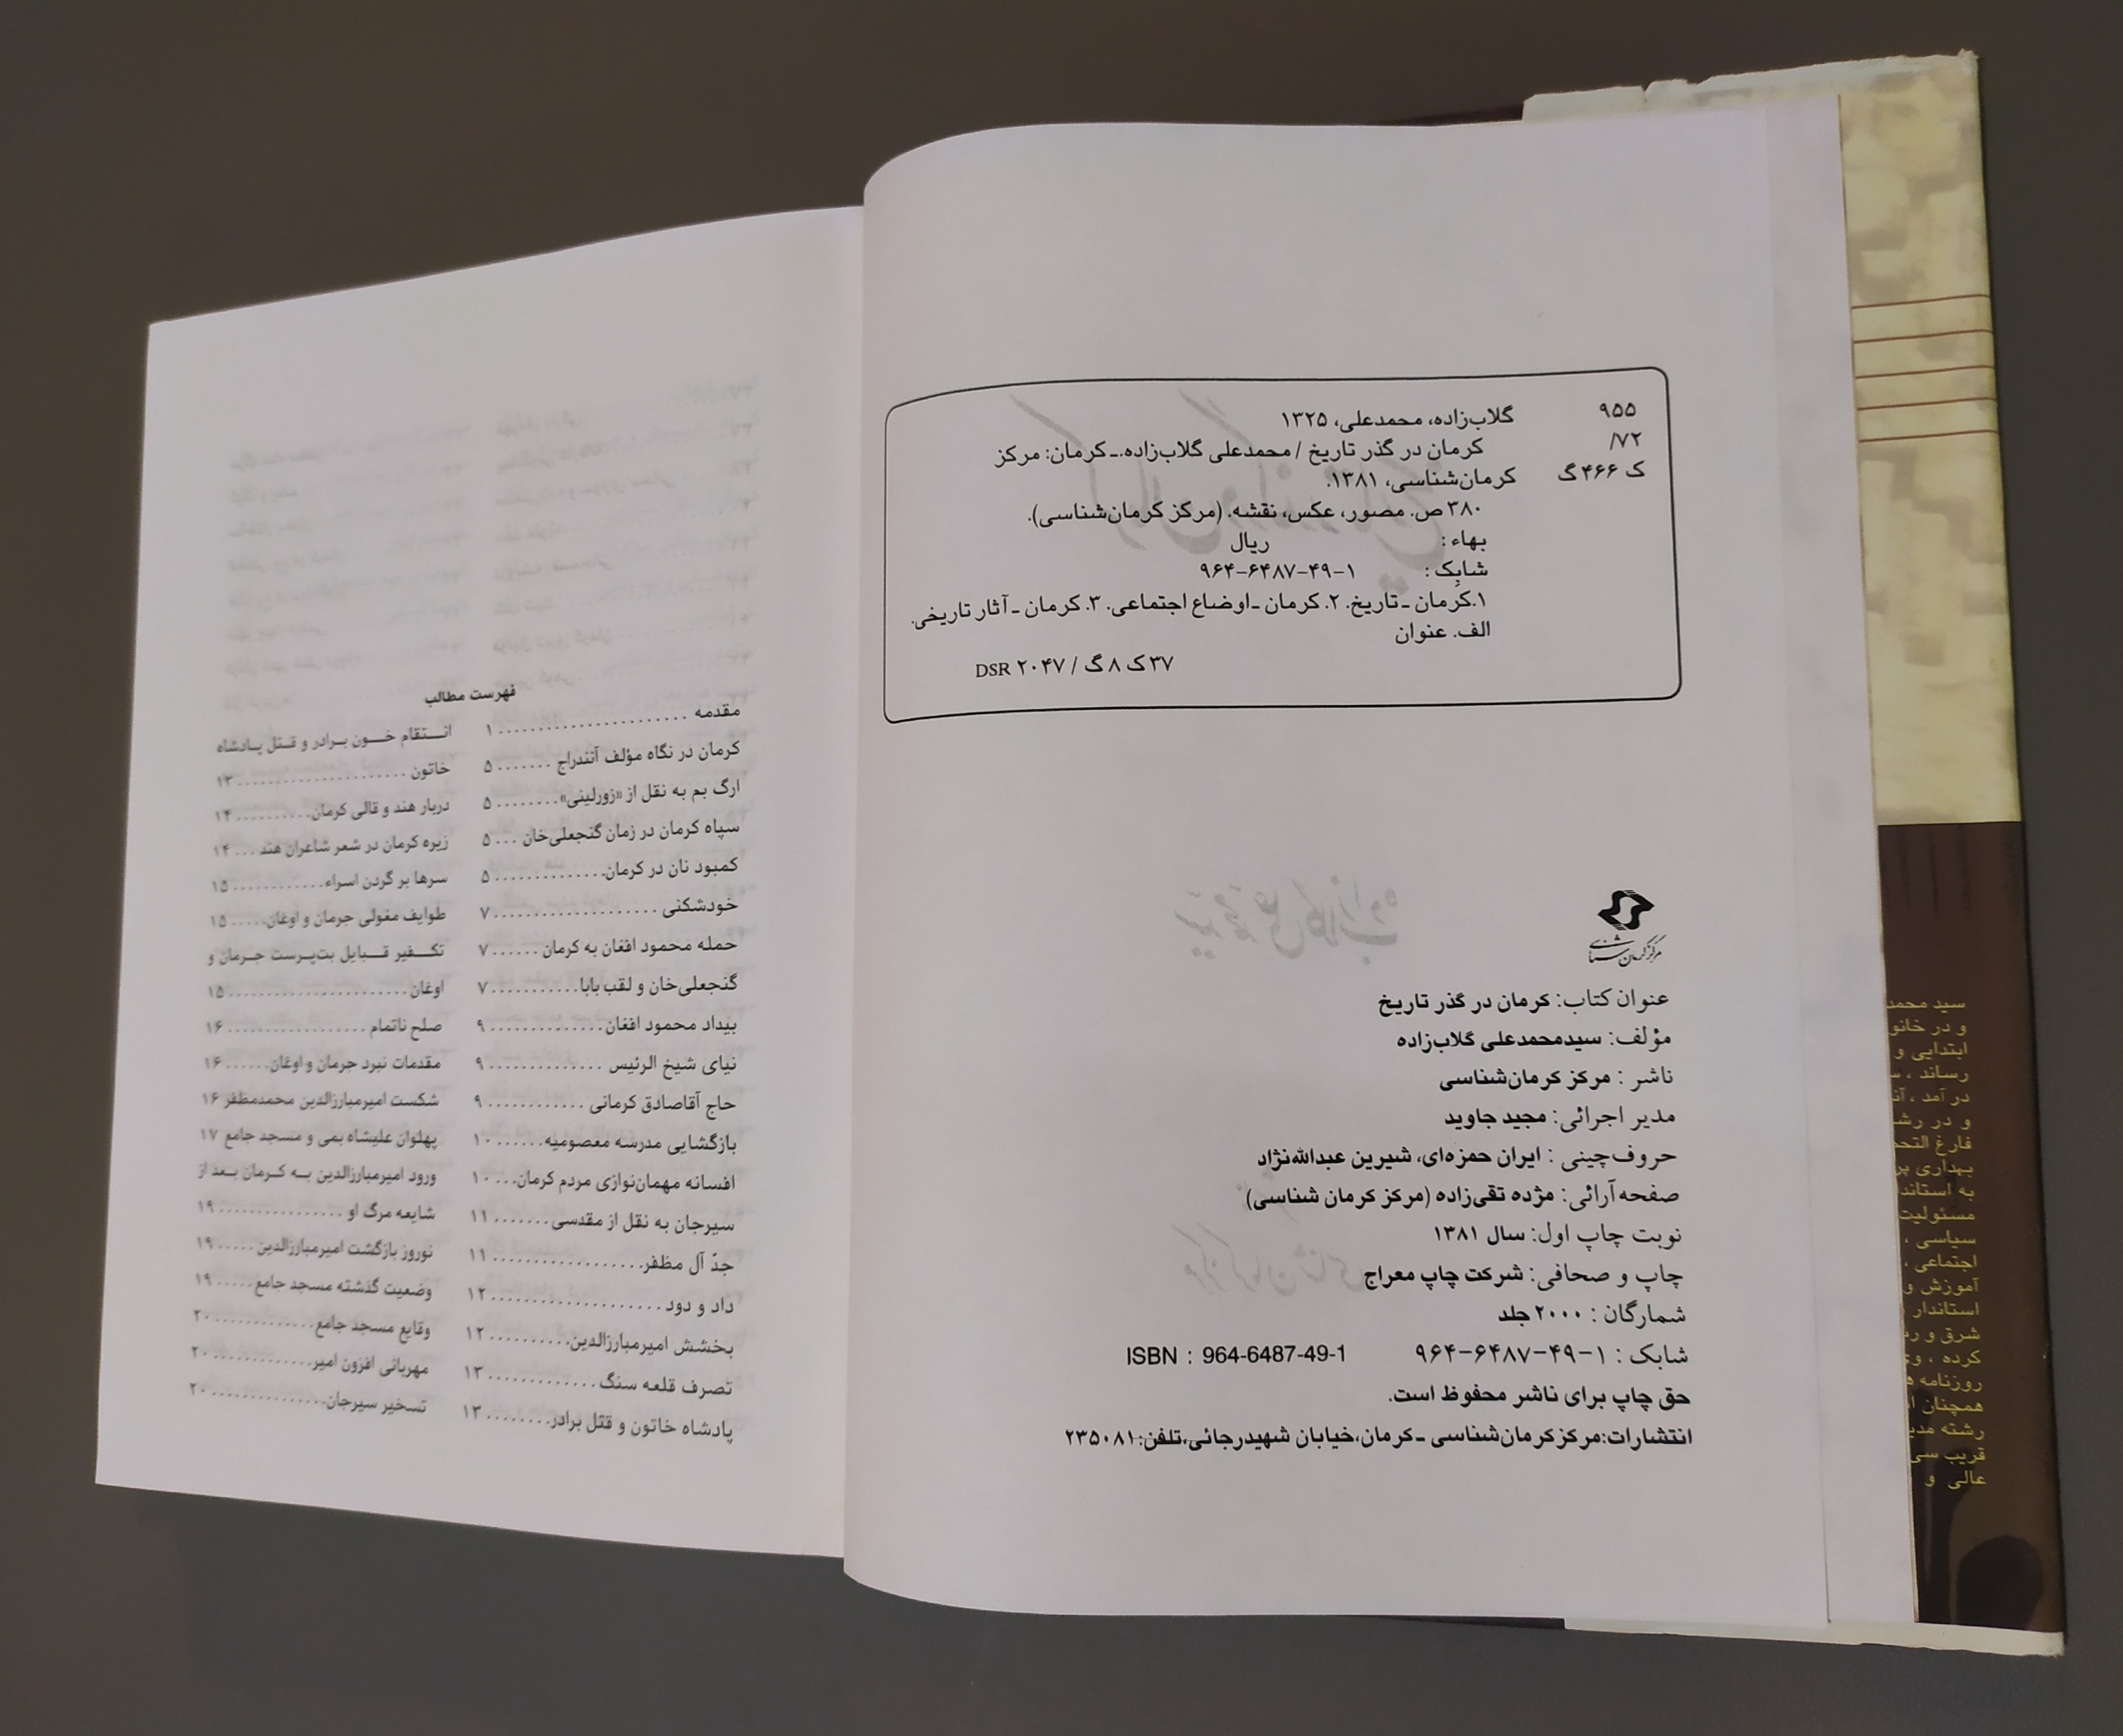 ۹۵۵ گلاب‌زاده، محمدعلی، ۱۳۲۵
/۷۲ کرمان در گذر تاریخ / محمدعلی گلاب‌زاده.ـ کرمان: مرکز
ک ۴۶۶ گ کرمان‌شناسی، ۱۳۸۱.
۳۸۰ ص. مصور، عکس، نقشه. (مرکز کرمان‌شناسی).
بهاء : ریال
شابک : ۱-۴۹-۶۴۸۷-۹۶۴
۱.کرمان ـ تاریخ. ۲. کرمان ـ اوضاع اجتماعی. ۳. کرمان ـ آثار تاریخی.
الف. عنوان
۳۷ ک ۸ گ / ۲۰۴۷ DSR
مرکز کرمان شناسی
عنوان کتاب: کرمان در گذر تاریخ
مؤلف: سیدمحمدعلی گلاب‌زاده
ناشر : مرکز کرمان‌شناسی
مدیر اجرائی: مجید جاوید
حروف‌چینی : ایران حمزه‌ای، شیرین عبدالله‌نژاد
صفحه‌آرائی: مژده تقی‌زاده (مرکز کرمان شناسی)
نوبت چاپ اول: سال ۱۳۸۱
چاپ و صحافی: شرکت چاپ معراج
شمارگان : ۲۰۰۰ جلد
شابک : ۱-۴۹-۶۴۸۷-۹۶۴ ISBN : 964-6487-49-1
حق چاپ برای ناشر محفوظ است.
انتشارات:مرکزکرمان‌شناسی ـ کرمان،خیابان شهیدرجائی،تلفن:۲۳۵۰۸۱
فهرست مطالب
مقدمه ........................ ۱
کرمان در نگاه مؤلف آنندراج ....... ۵
ارگ بم به نقل از «زورلینی»........ ۵
سپاه کرمان در زمان گنجعلی‌خان ... ۵
کمبود نان در کرمان.............. ۵
خودشکنی .................... ۷
حمله محمود افغان به کرمان ...... ۷
گنجعلی‌خان و لقب بابا........... ۷
بیداد محمود افغان.............. ۹
نیای شیخ الرئیس .............. ۹
حاج آقاصادق کرمانی ............ ۹
بازگشایی مدرسه معصومیه....... ۱۰
افسانه مهمان‌نوازی مردم کرمان... ۱۰
سیرجان به نقل از مقدسی ....... ۱۱
جدّ آل مظفر.................. ۱۱
داد و دود .................... ۱۲
بخشش امیرمبارزالدین.......... ۱۲
تصرف قلعه سنگ ............. ۱۳
پادشاه خاتون و قتل برادر........ ۱۳
انـتقام خـون بـرادر و قـتل پـادشاه
خاتون ...................... ۱۳
دربار هند و قالی کرمان.......... ۱۴
زیره کرمان در شعر شاعران هند ... ۱۴
سرها بر گردن اسراء............ ۱۵
طوایف مغولی جرمان و اوغان..... ۱۵
تکـفیر قـبایل بت‌پـرست جـرمان و
اوغان....................... ۱۵
صلح ناتمام .................. ۱۶
مقدمات نبرد جرمان و اوغان...... ۱۶
شکست امیرمبارزالدین محمدمظفر ۱۶
پهلوان علیشاه بمی و مسجد جامع ۱۷
ورود امیرمبارزالدین بـه کـرمان بـعد از
شایعه مرگ او ................ ۱۹
نوروز بازگشت امیرمبارزالدین ..... ۱۹
وضعیت گذشته مسجد جامع..... ۱۹
وقایع مسجد جامع............. ۲۰
مهربانی افزون امیر............. ۲۰
تسخیر سیرجان............... ۲۰
سید محمد
و در خانو
ابتدایی و
رساند ، س
در آمد ، آن
و در رش
فارغ التح
بهداری پر
به استاند
مسئولیت
سیاسی ،
اجتماعی ،
آموزش و
استاندار
شرق و
کرده ، و
روزنامه
همچنان
رشته مدی
قریب سی
عالی و